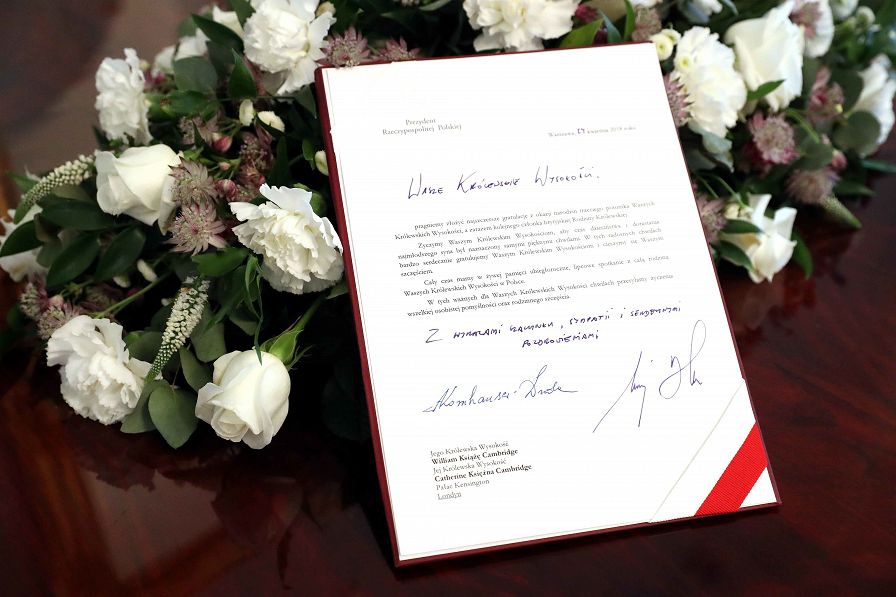 Prezydent
Rzeczypospolitej Polskiej
Warszawa, 24 kwietnia 2018 roku
Wasze Królewskie Wysokości,
pragniemy złożyć najszczersze gratulacje z okazji narodzin trzeciego potomka Waszych
Królewskich Wysokości, a zarazem kolejnego członka brytyjskiej Rodziny Królewskiej.
Życzymy Waszym Królewskim Wysokościom, aby czas dzieciństwa i dorastania
najmłodszego syna był naznaczony samymi pięknymi chwilami. W tych radosnych chwilach
bardzo serdecznie gratulujemy Waszym Królewskim Wysokościom i cieszymy się Waszym
szczęściem.
Cały czas mamy w żywej pamięci ubiegłoroczne, lipcowe spotkanie z całą rodziną
Waszych Królewskich Wysokości w Polsce.
W tych ważnych dla Waszych Królewskich Wysokości chwilach przesyłamy życzenia
wszelkiej osobistej pomyślności oraz rodzinnego szczęścia.
Z wyrazami szacunku, sympatii i serdecznymi
pozdrowieniami
AKornhauser-Duda
Jego Królewska Wysokość
William Książę Cambridge
Jej Królewska Wysokość
Catherine Księżna Cambridge
Pałac Kensington
Londyn